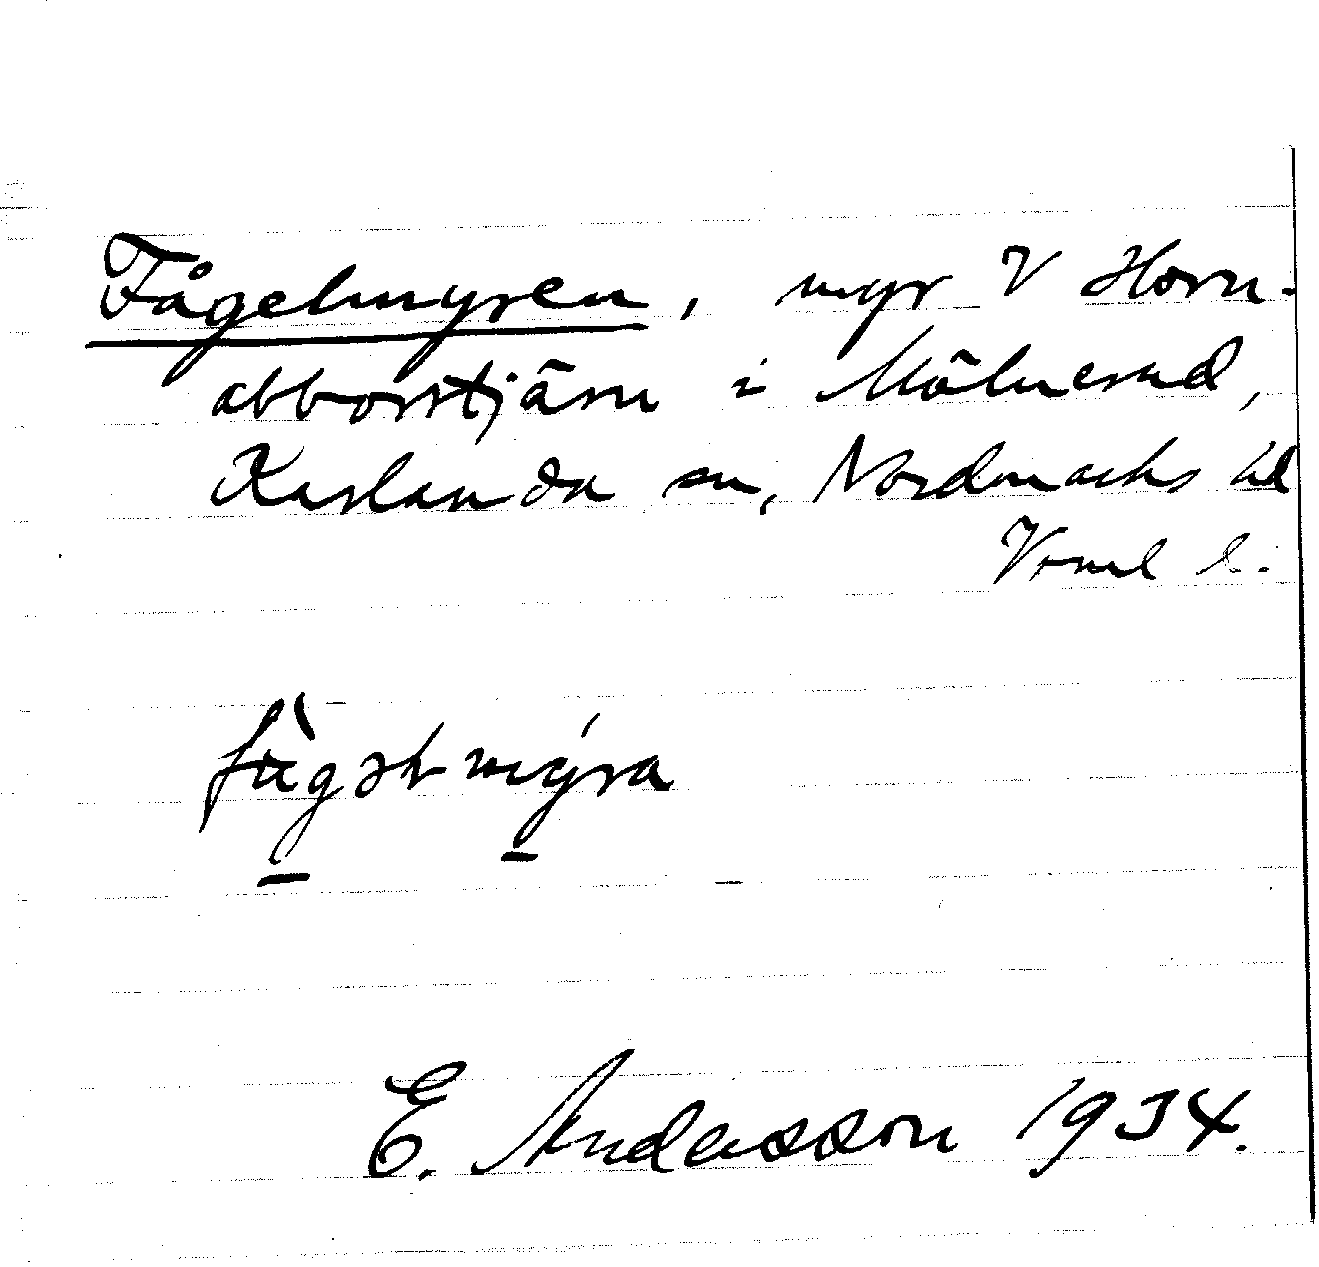 Fågelmyren, myr V Horn-
abborrtjärn i Mölnerud,
Karlanda sn, Nordmarks hd
Vrml l.
E. Andersson 1934.